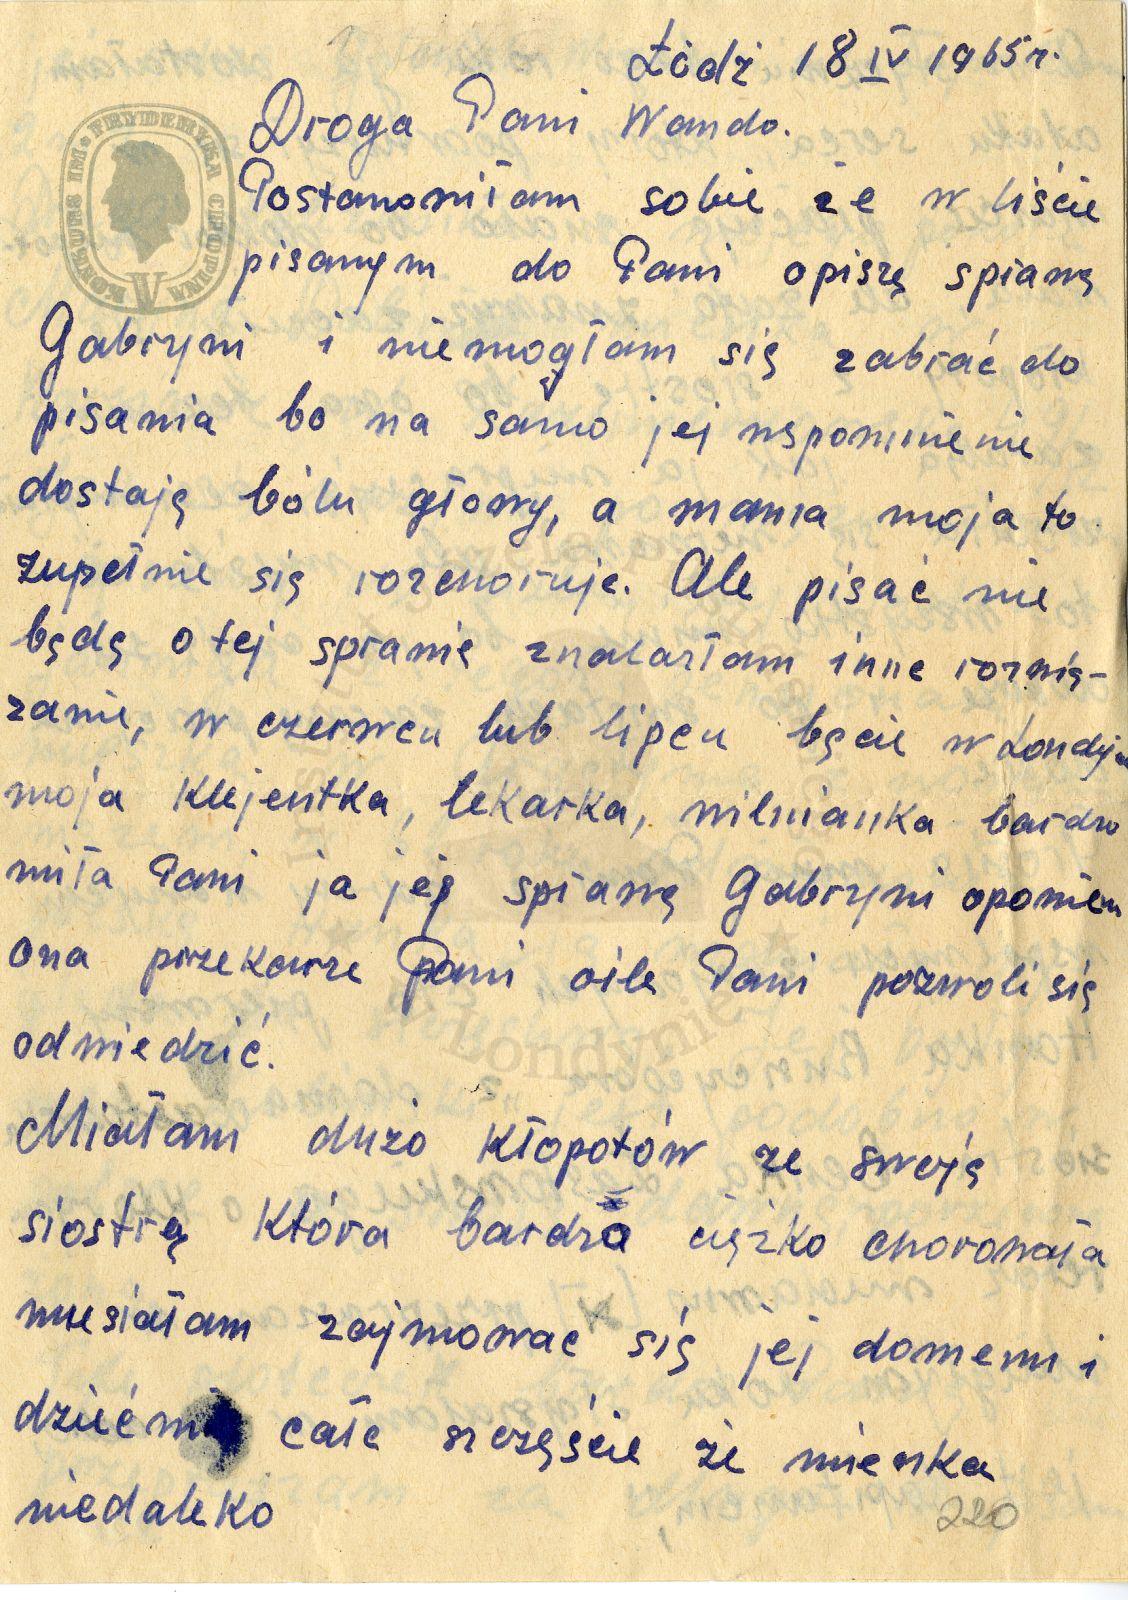 Łódź 18 IV 1965 r.
KONKURS IM. FRYDERYKA CHOPINA
IV
Droga Pani Wando.
Postanowiłam sobie że w liście
pisanym do Pani opiszę sprawę
Gabryni i niemogłam się zabrać do
pisania bo na samo jej wspomnienie
dostają bólu głowy, a mama moja to
zupełnie się rozchoruje. Ale pisać nie
będę o tej sprawie znalazłam inne rozwią-
zanie, w czerwcu lub lipcu będzie w Londynie
moja klejentka, lekarka, wilnianka bardzo
miła Pani ja jej sprawę Gabryni opowiem
ona przekarze Pani oile Pani pozwoli się
odwiedzić.
Miałam dużo kłopotów ze swoją
siostrą która bardzo ciężko chorowała
musiałam zajmować się jej domem i
dziećmi całe szczęście że mieszka
niedaleko
220
w Londynie